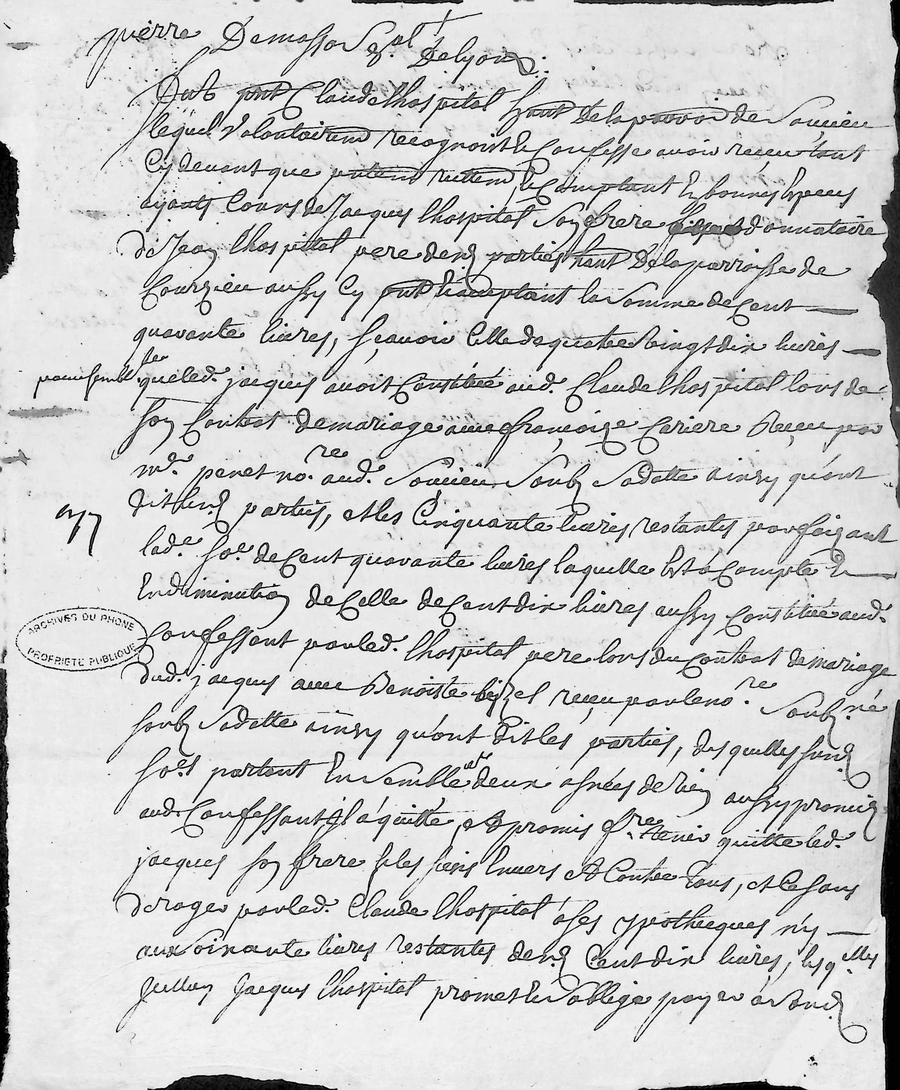 pierre Demasso Delyon
Claude lhospital habt Delaparroi de Soucieu
lequel Volontairemt recognoist & Confesse avoir receu tant
Cy devant que & Comptant En bonnes Especes
ayants Cours de Jacques lhospital Son frere donnataire
de Jean lhospital pere desd parties habt Delaparroisse de
Courzieu aussy Cy pnt & acceptant la Somme de Cent
quarante livres, Sçavoir Celle de quatre Vingt dix livres
queled. jacques avoit Constituée aud. Claude lhospital lors de
Son Contrat de mariage avec françoize Cariere Receu par
me. penet nore. aud. Soucieu Soubz Sadatte ainsy qu'ont
dit lesd parties, et les Cinquante livres restantes parfaizant
lade. Soe. de Cent quarante livres laquelle Est a Compte &
En diminution de Celle de Cent dix livres aussy Constituée aud.
Confessant parled. lhospital pere lors du Contrat de mariage
dud. jacques avec Benoiste receu parle nore Soubzné
Soubz Sadatte ainsy qu'ont dit les parties, desquelles susd
Soes partant Ensemble deux asnées de vin aussy promis
aud. Confessant Il a quitté, et promis fre tenir quitte led.
jacques Son frere & les siens Envers & Contre Tous, et Ce sans
deroger parled. Claude lhospital a ses ypotheques n'y
aux soixante livres restantes desd Cent dix livres, lesqlles
Jacques lhospital promet & s'oblige payer
ARCHIVES DU RHONE
PROPRIETE PUBLIQUE